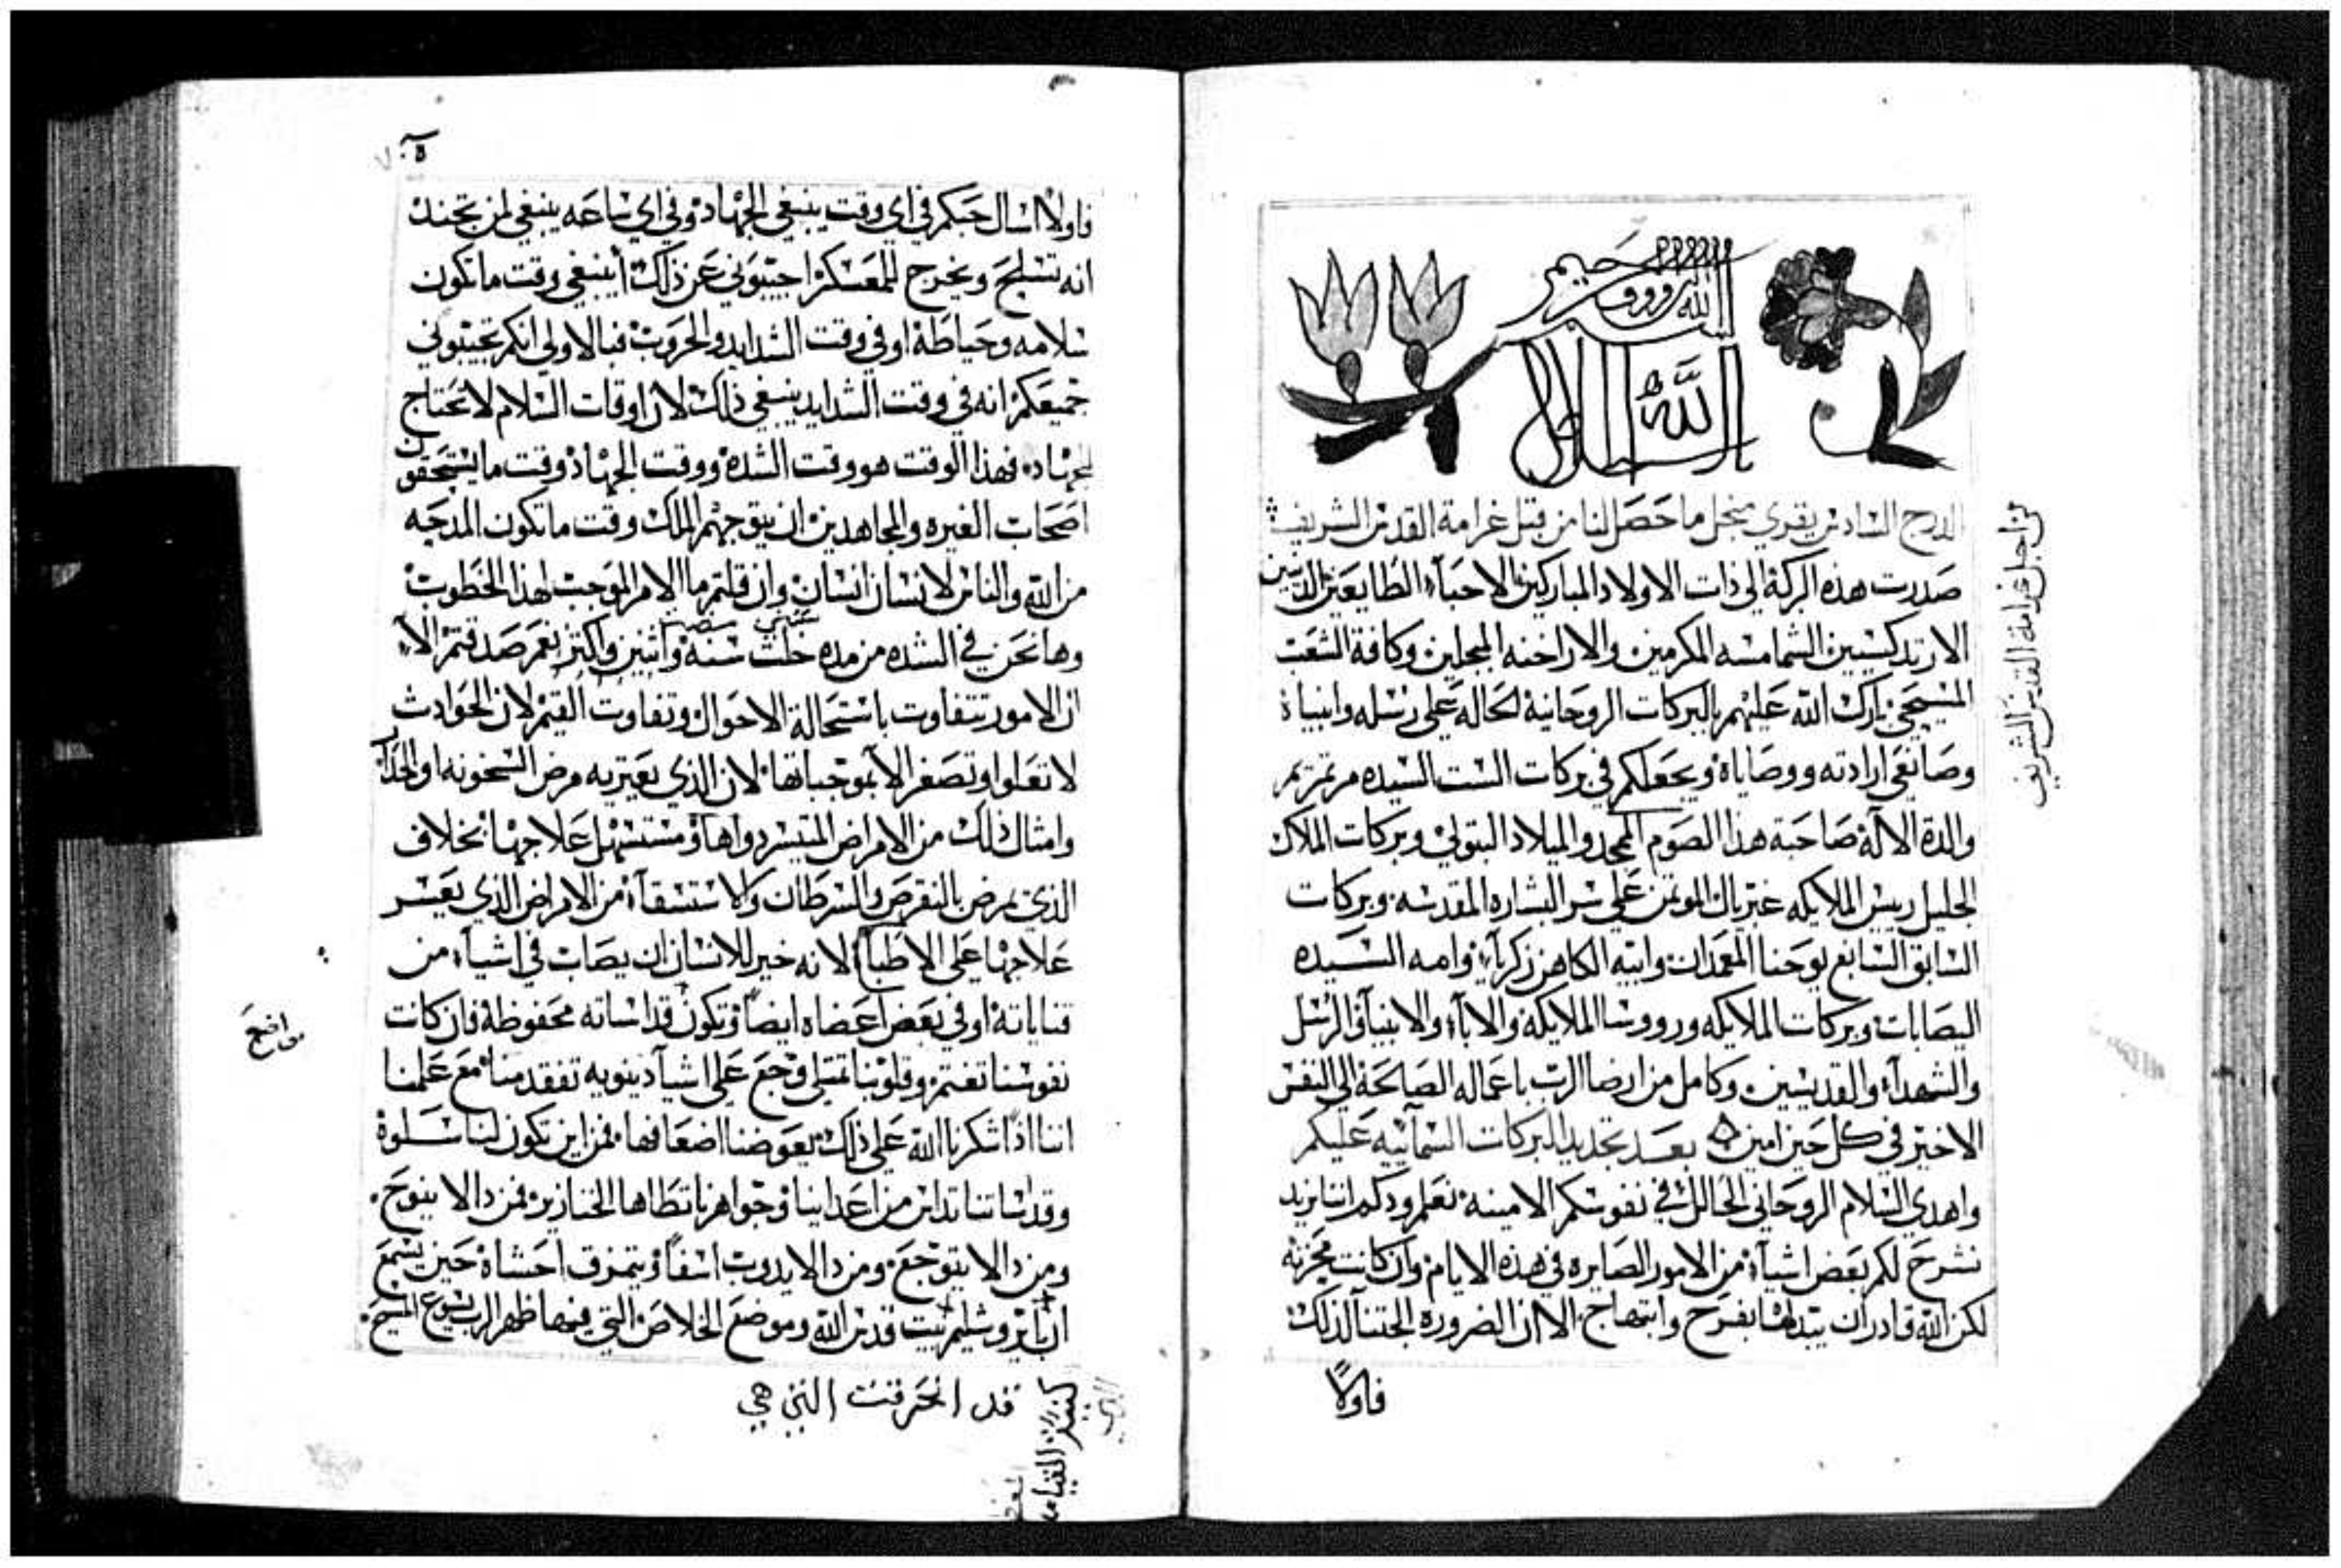 بسم الله الرووف الرحيم
الدرج السادس يقري من اجل ما حصل لنا من قبل غرامة القدس الشريف
صدرت هذه البركة الي ذات الاولاد المباركين الاحباء الطايعين الدينين
الارتدكسيين الشمامسه المكرمين والاراخنه المبجلين وكافة الشعب
المسيحي بارك الله عليهم بالبركات الروحانية الحاله علي رسله وانبياه
وصانعي ارادته ووصاياه ويجعلكم في بركات الست السيده مرتمريم
والدة الاله صاحبة هذا الصوم الممجد والميلاد البتولي وبركات الملاك
الجليل رييس الملايكه غبريال الموتمن علي سر البشاره المقدسه وبركات
السابق السابغ يوحنا المعمدان وابيه الكاهن زكرياء وامه السيده
اليصابات وبركات الملايكه ورووسا الملايكة والاباء والانبياء والرسل
والشهداء والقديسين وكامل من ارضا الرب باعماله الصالحة الي النفس
الاخير في كل حين امين بعد تجديد البركات السمآييه عليكم
واهدي السلام الروحاني الحالل في نفوسكم الامينه نعلم ودكم اننا نريد
نشرح لكم بعض اشيآء من الامور الصايره في هذه الايام وان كانت محزنه
لكن الله قادر ان يبدلها بفرح وابتهاج الا ان الضروره الجتنا لذلك
فاولاً
من اجل غرامة القدس الشريف
فاولاً اسال حبكم في اي وقت ينبغي الجهاد وفي اي ساعه ينبغي لمن تجند
انه تسلح ويخرج للمعسكر اجيبوني عن ذلك أينبغي وقت ما تكون
سلامه وحياطة او في وقت الشدايد والحروب فبالاولي انكم تجيبوني
جميعكم انه في وقت الشدايد ينبغي ذلك لان اوقات السلام لا تحتاج
لجهاد فهذا الوقت هو وقت الشدة ووقت الجهاد وقت ما يستحقون
اصحاب الغيره والمجاهدين ان يتوجهم الملك وقت ما تكون المدحه
من الله والناس لانسان انسان وان قلتم ما الامر الموجب لهذا الخطوب
وها نحن في الشده من مده خلت سنه واثنين واكتر نعم صدقتم الا
ان الامور تتفاوت باستحالة الاحوال وتفاوت القيم لان الحوادث
لا تعلوا وتصغر الا بموجباتها لان الذي يعتريه مرض السخونه او الحدا
وامثال ذلك من الامراض المتيسر دواها ومستسهل علاجها بخلاف
الذي يمرض بالنقرص والسرطان والاستسقآء من الامراض الذي يعسر
علاجها علي الاطبا لانه خير للانسان ان يصاب في اشياء من
قناياته او في بعض اعضاه ايضاً وتكون قداساته محفوظه فان كانت
نفوسنا تغتم وقلوبنا تمتلي وجع علي اشيآ دينويه تفقد منا مع علمنا
اننا اذا شكرنا الله علي ذلك يعوضنا اضعافها فمن اين تكون لنا سلوة
وقداساتنا تداس من اعداينا وجواهرنا تطاها الخنازير فمن ذا لا ينوح
ومن ذا لا يتوجع ومن ذا لا يدوب اسفاً ويتمزق احشاه حين يسمع
ان يا يروشليم بيت قدس الله وموضع الخلاص التي فيها ظهر الرب يسوع المسيح
قد انحرقت التي هي
كنيسة القيامه